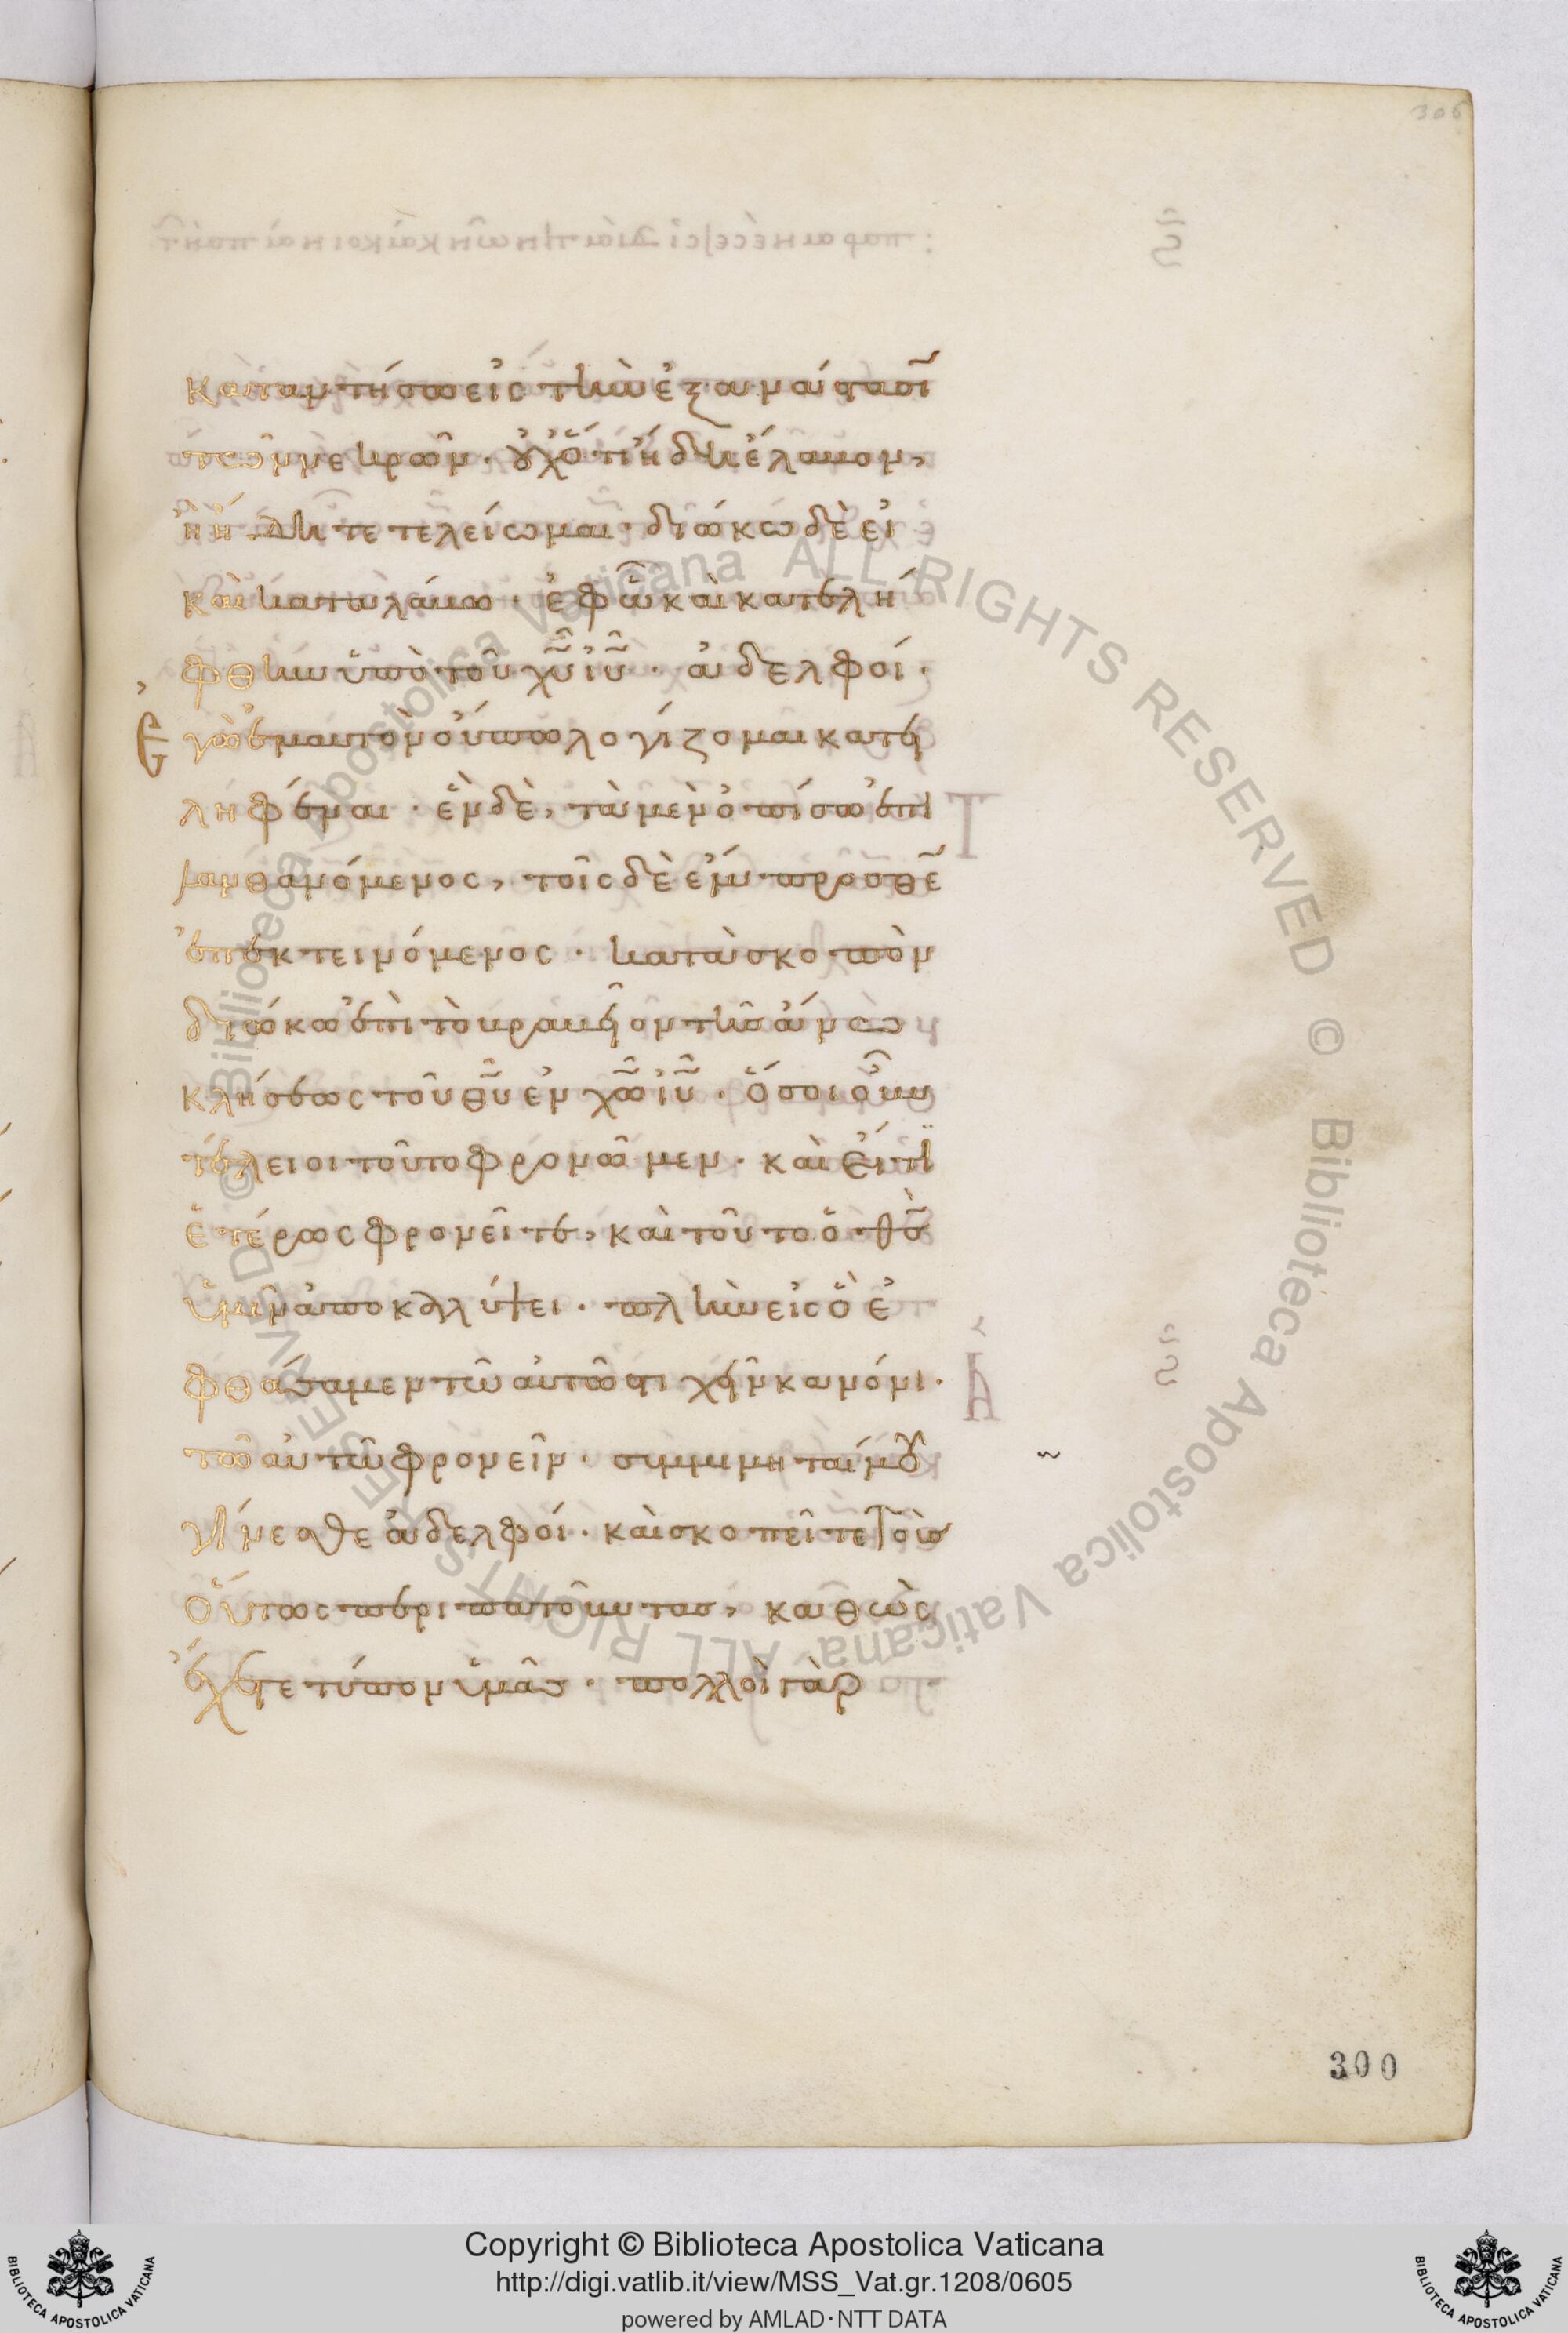 306
καταντήσω εἰς τὴν ἐξανάστασῑ
τῶν νεκρῶν· οὐχ ὅτι ἤδη ἔλαβον,
ἢ ἤδη τετελείωμαι· διώκω δὲ εἰ
καὶ καταλάβω· ἐφ ᾧ καὶ κατελή
φθην ὑπὸ τοῦ χυ ιυ· ἀδελφοί·
Ἐγὼ ἐμαυτὸν οὔπω λογίζομαι κατει
ληφέναι· ἓν δὲ, τὰ μὲν ὀπίσω ἐπι
λανθανόμενος, τοῖς δὲ ἔμπροσθε̄
ἐπεκτεινόμενος· κατὰ σκοπὸν
διώκω ἐπὶ τὸ βραβεῖον τῆς ἄνω
κλήσεως τοῦ θυ ἐν χω ιυ· ὅσοι οὖν
τέλειοι τοῦτο φρονῶμεν· καὶ εἴ τι
ἑτέρως φρονεῖτε, καὶ τοῦτο ὁ θς
ὑμῖν ἀποκαλύψει· πλὴν εἰς ὃ ἐ
φθάσαμεν τῶ αὐτῶ στιχεῖν κανόνι·
τῶ αὐτῶ φρονεῖν· συμμιμηταί μου
γίνεσθε ἀδελφοί· καὶ σκοπεῖτε τοὺς
οὕτως περιπατοῦντας, καθὼς
ἔχετε τύπον ὑμᾶς· πολλοὶ γὰρ
300
© Biblioteca Apostolica Vaticana ALL RIGHTS RESERVED © Biblioteca Apostolica Vaticana ALL RIGHTS RESERVED
Copyright © Biblioteca Apostolica Vaticana
http://digi.vatlib.it/view/MSS_Vat.gr.1208/0605
powered by AMLAD·NTT DATA
BIBLIOTECA APOSTOLICA VATICANA
BIBLIOTECA APOSTOLICA VATICANA